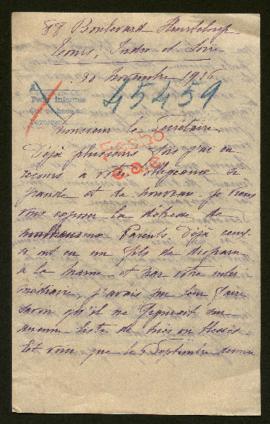 88 Boulevard Heurteloup
Tours, Indre et Loire
30 novembre 1916
45459
Monsieur le Secrétaire
Déjà plusieurs fois j'ai eu
recours à votre obligeance si
grande et de nouveau je viens
vous exposer la détresse de
malheureux Parents. Déjà ceux
ci ont eu un fils de disparu
à la Marne et par votre inter
médiaire, j'avais pu leur faire
savoir qu'il ne figurait sur
aucune liste de
Et voici que le 5 Septembre dernier